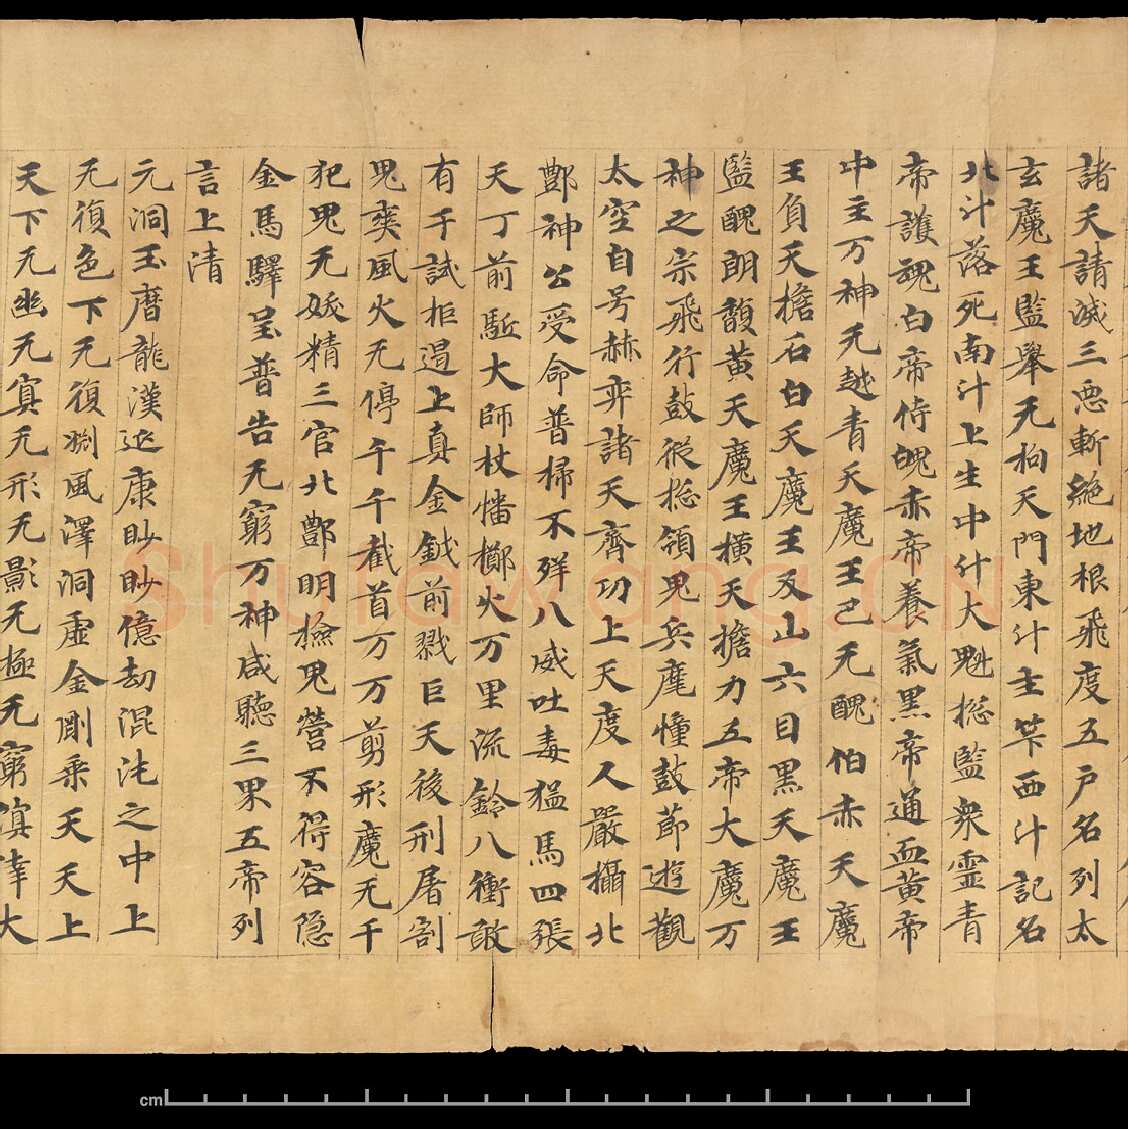 諸天請滅三惡斬絶地根飛度五户名列太
玄魔王監舉无拘天門東汁主笇西汁記名
北汁落死南汁上生中汁大魁揔監衆靈青
帝護魂白帝侍魄赤帝養氣黑帝通血黄帝
中主万神无越青天魔王巴无醜伯赤天魔
王負天檐石白天魔王反山六目黑天魔王
監醜朗馥黄天魔王橫天擔力五帝大魔万
神之宗飛行鼓從揔領鬼兵麾幢鼓節遊觀
太空自号赫弈諸天齊功上天度人嚴攝北
酆神公受命普掃不祥八威吐毒猛馬四張
天丁前駈大師杖幡擲火万里流鈴八衝敢
有干試拒遏上真金鉞前戮巨天後刑屠割
鬼爽風火无停千千截首万万剪形魔无干
犯鬼无妖精三官北酆明檢鬼營不得容隱
金馬驛呈普告无窮万神咸聽三界五帝列
言上清
元洞玉曆龍漢延康眇眇億劫混沌之中上
无復色下无復渊風澤洞虛金剛乘天天上
天下无幽无冥无形无影无極无窮溟涬大
Shufawang.CN
cm